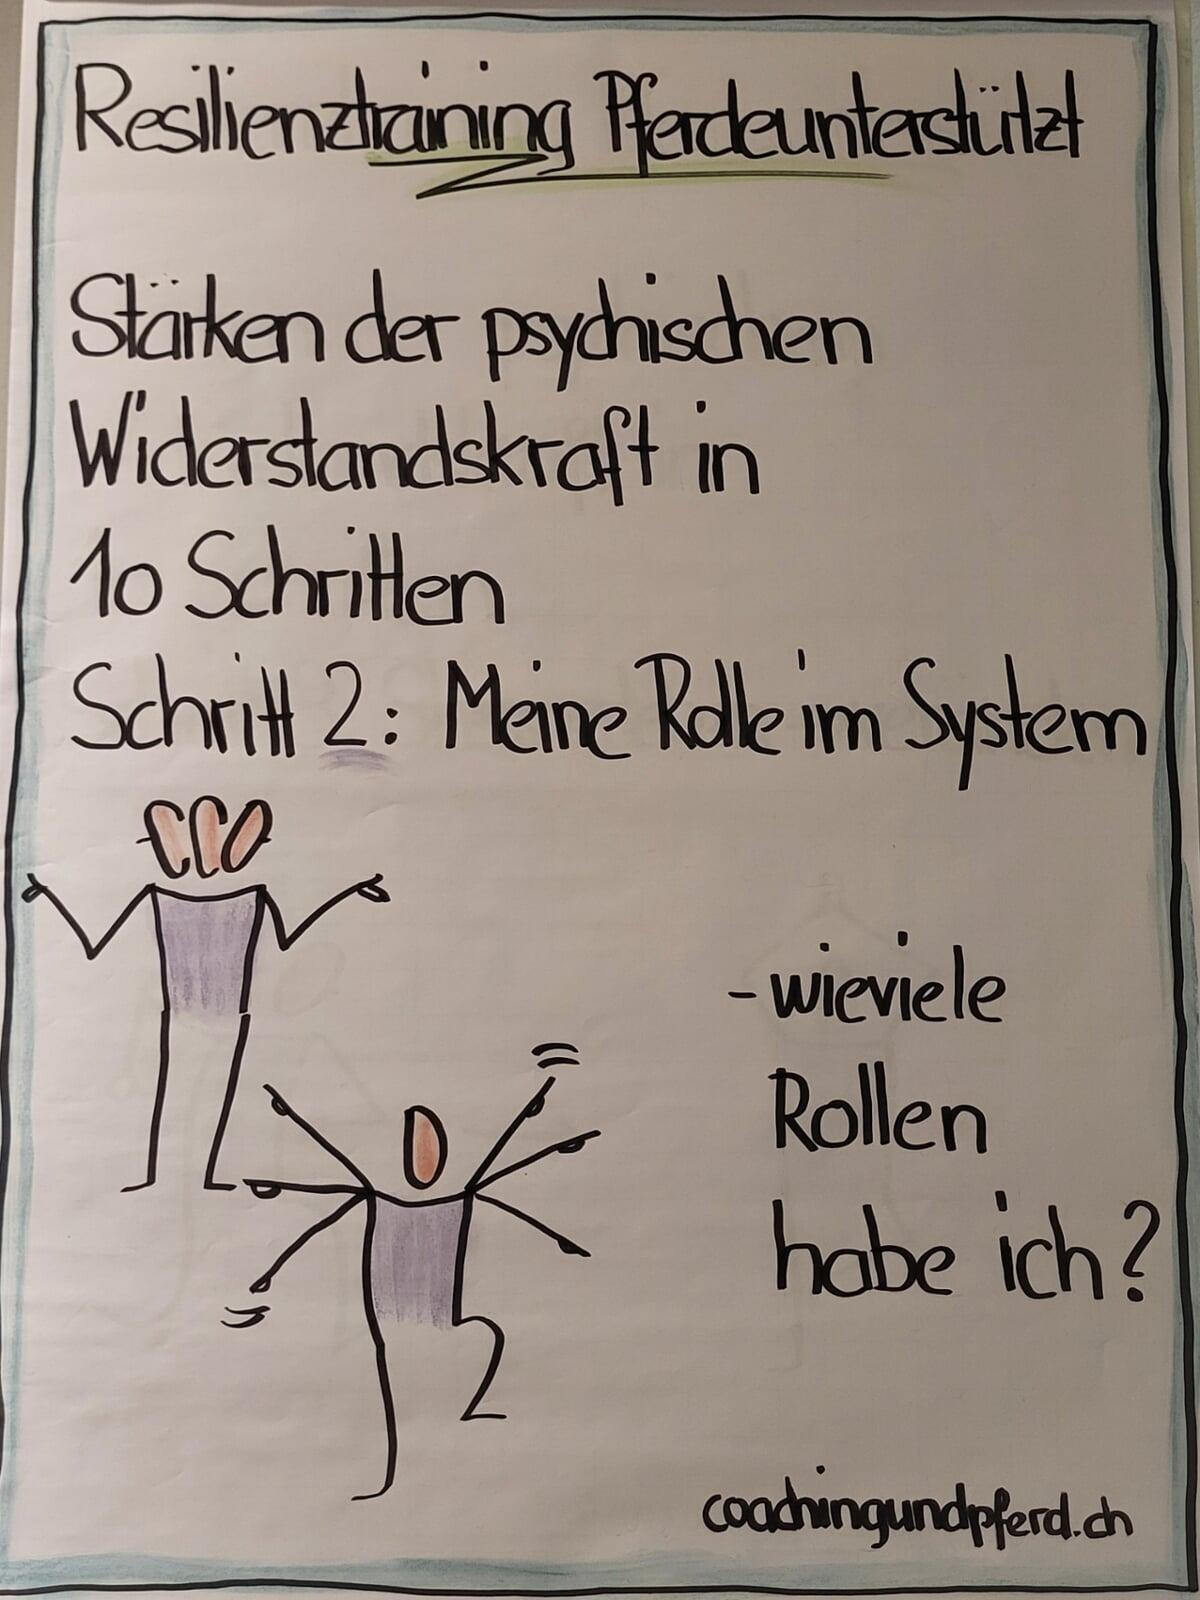 Resilienztraining Pferdeunterstützt
Stärken der psychischen
Widerstandskraft in
10 Schritten
Schritt 2: Meine Rolle im System
- wieviele
Rollen
habe ich?
coachingundpferd.ch